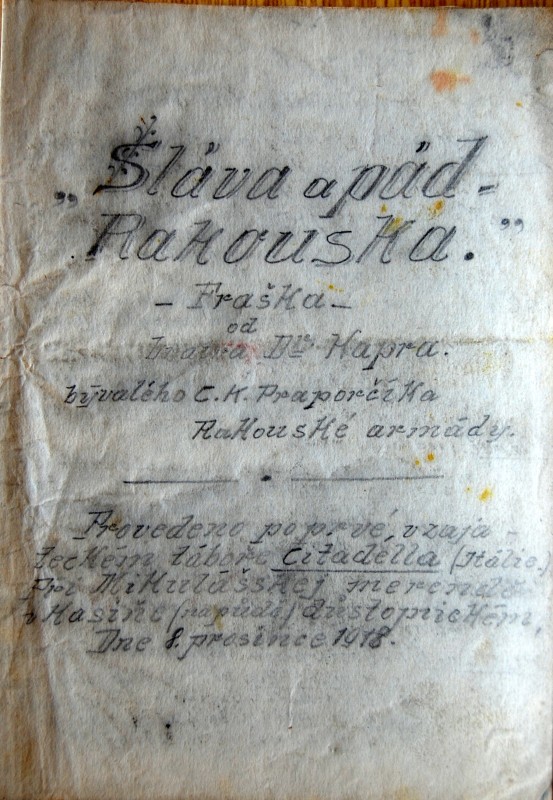 „Sláva a pád-
Rakouska.”
- Fraška -
od
Dra Kapra.
bývalého C. K. Praporčíka
Rakouské armády.
Provedeno poprvé, v zaja-
teckém táboře Citadella (Itálie.)
Při Mikulášskej merenda
v Kasíně (na půdě) důstojnickém,
Dne 8. prosince 1918.